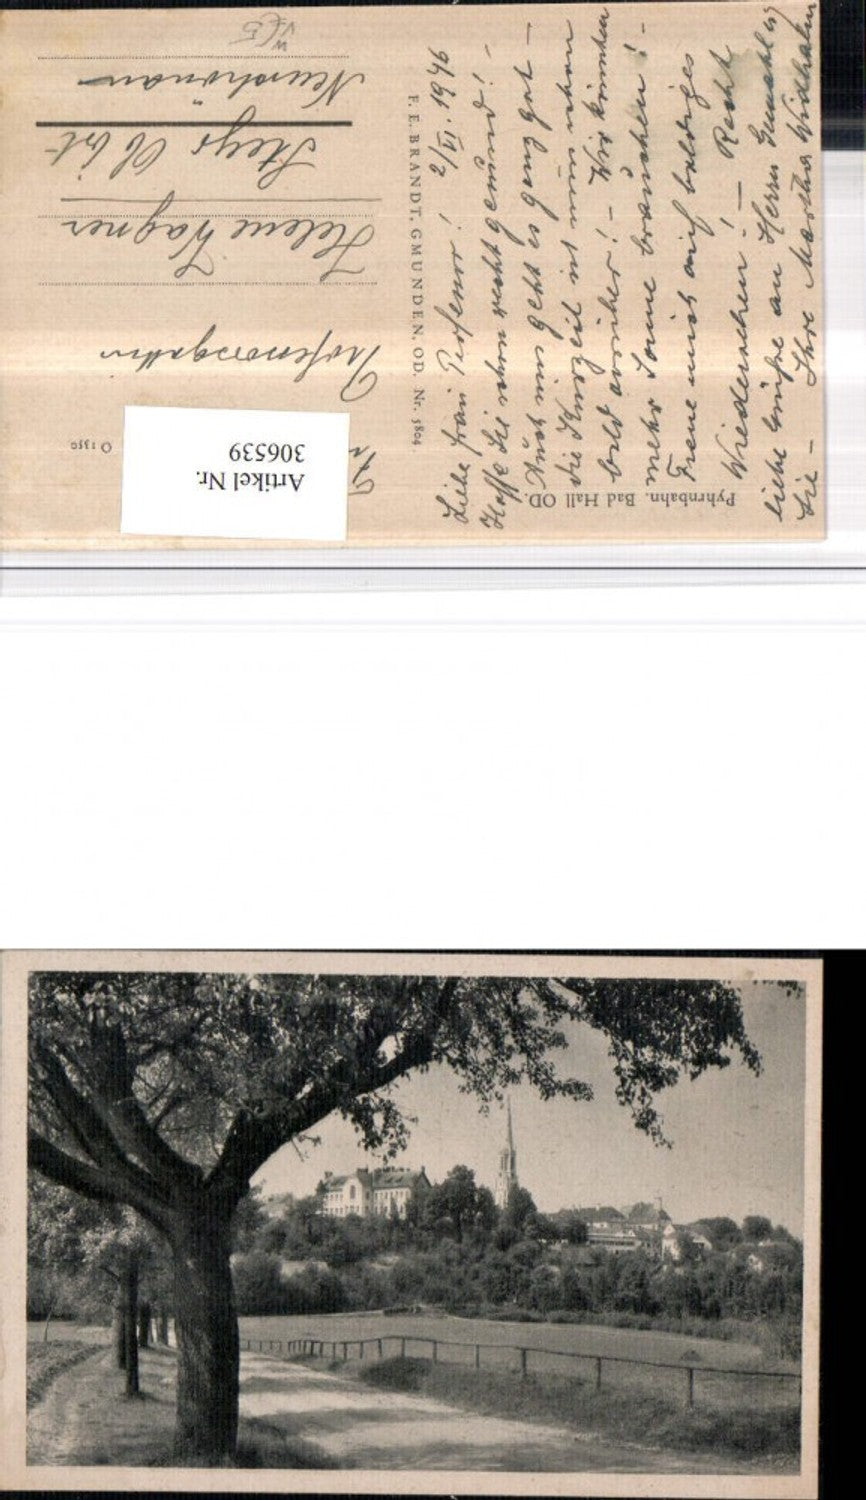 Pyhrnbahn. Bad Hall OD.
Liebe Frau Professor! 2/VI. 1946
Hoffe Sie schon recht gesund! -
Auch mir geht es ganz gut -
die Kurzeit ist nun schon
bald vorüber! - Wir könnten
mehr Sonne brauchen! -
Freue mich auf baldiges
Wiedersehen! - Recht
liebe Grüße an Herrn Gemahl u
Sie - Ihre Martha Widhalm
F. E. BRANDT, GMUNDEN, OD. Nr. 5804
Professorsgattin
Helene Wagner
Steyr
Neuschönau
O 1350
Artikel Nr.
306539